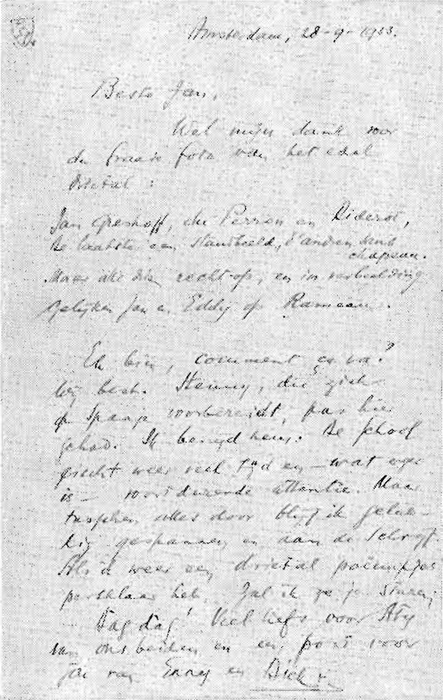 Amsterdam, 28-9-1933.
Beste Jan,
Wel mijn dank voor
de fraaie foto van het edel
drietal:
Jan Greshoff, du Perron en Diderot,
de laatste een standbeeld, d'andren sans
chapeau.
Maar alle drie rechtop, en in verbeelding
gelijken Jan en Eddy op Rameau.
Eh bien, comment ça va?
bij best. Stenny, die zich
op Spanje voorbereidt, pas hier
gehad. Ik benijd hem. De school
vreet weer veel tijd en — wat erger
is — voortdurende attentie. Maar
tusschen alles door blijf ik geluk-
kig gespannen en aan de schrijf.
Als ik weer een drietal poëempjes
persklaar heb zal ik ze je sturen.
Dag dag! Veel liefs voor Aty
van ons beiden en een poot voor
jou van Enny en Dick